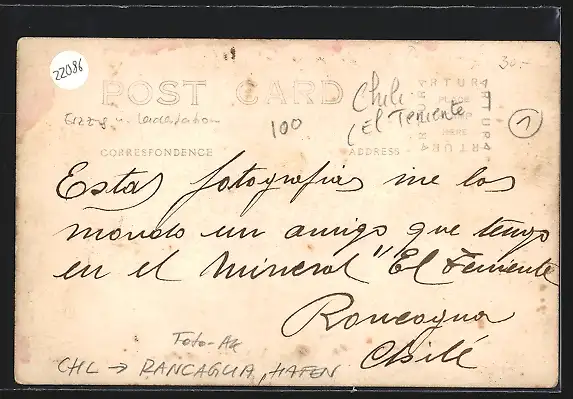 22086
POST CARD
30.-
Chile
(El Teniente
100
1
ARTURA ARTURA ARTURA ARTURA
PLACE
HERE
CORRESPONDENCE
ADDRESS
Estas fotografias me las
mando un amigo que tengo
en el mineral "El Teniente
Rancagua
Chile
Foto-AK
CHL → RANCAGUA, HAFEN